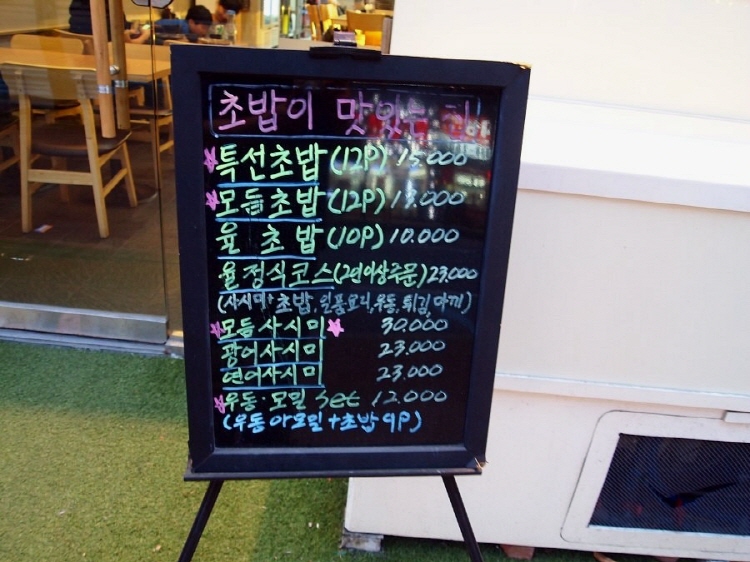 초밥이 맛있는 집
특선초밥 (12P) 15.000
모듬초밥 (12P) 13.000
율 초밥 (10P) 10.000
율정식코스(2인이상주문) 23.000
(사시미, 초밥, 일품요리, 우동, 튀김, 마끼)
모듬사시미 30.000
광어사시미 23.000
연어사시미 23.000
우동·모밀 set 12.000
(우동 or 모밀 + 초밥 9P)